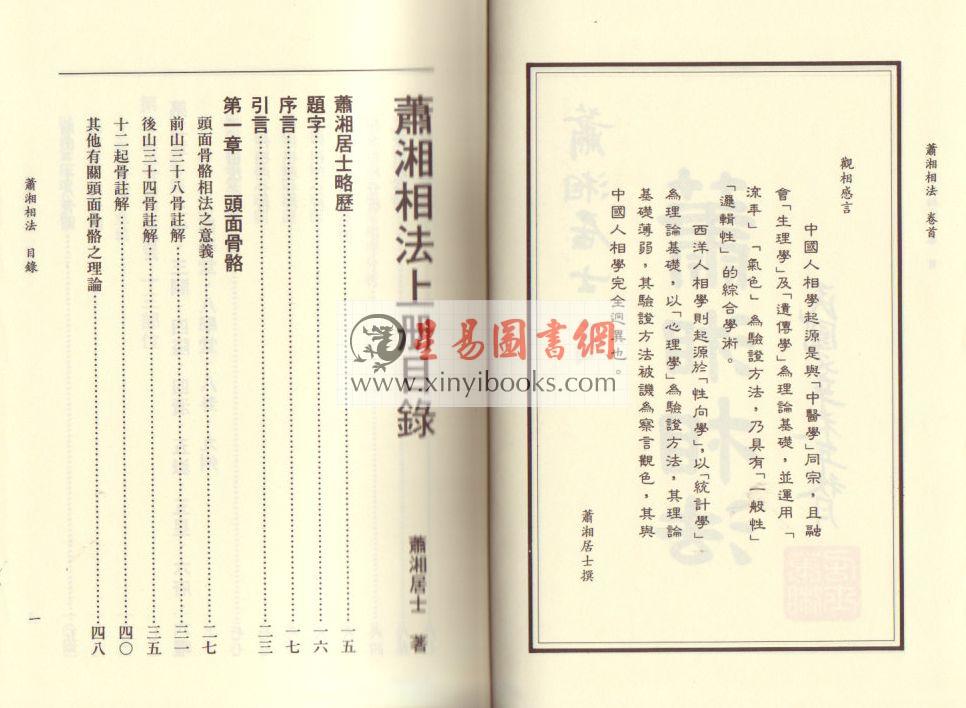 蕭湘相法　卷首
觀相感言
中國人相學起源是與「中醫學」同宗，且融
會「生理學」及「遺傳學」為理論基礎，並運用「
流年」「氣色」為驗證方法，乃具有「一般性」
「邏輯性」的綜合學術。
西洋人相學則起源於「性向學」，以「統計學」
為理論基礎，以「心理學」為驗證方法，其理論
基礎薄弱，其驗證方法被譏為察言觀色，其與
中國人相學完全迥異也。
蕭湘居士撰
蕭湘相法上册目錄
蕭湘居士　著
蕭湘居士略歷……一五
題字……一六
序言……一七
引言……二三
第一章　頭面骨骼
頭面骨骼相法之意義……二七
前山三十八骨註解……三一
後山三十四骨註解……三五
十二起骨註解……四〇
其他有關頭面骨骼之理論……四八
蕭湘相法　目錄
一
星易圖書網
www.xinyibooks.com